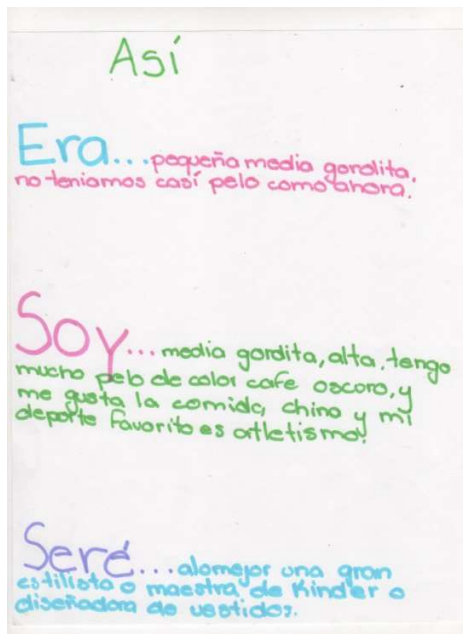 Así
Era...pequeña media gordita,
no teniamos casí pelo como ahora.
Soy...media gordita, alta, tengo
mucho pelo de color cafe oscoro, y
me gusta la comida, chino y mi
deporte favorito es atletismo!
Seré...alomejor una gran
estilista o maestra de Kinder o
diseñadora de vestidos.